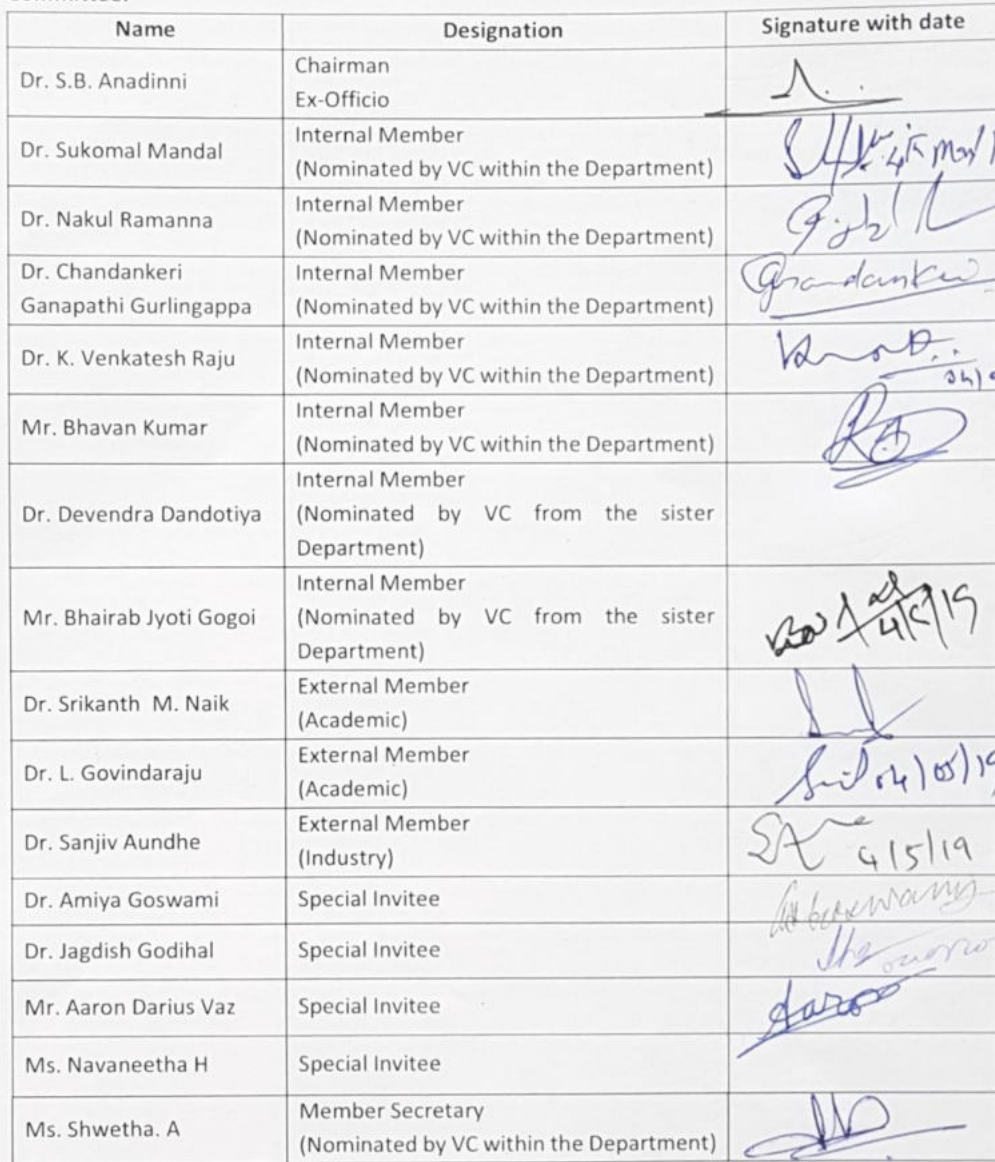 Name Designation Signature with date
Dr. S.B. Anadinni
Chairman
Ex-Officio
Dr. Sukomal Mandal
Internal Member
(Nominated by VC within the Department)
Dr. Nakul Ramanna
Internal Member
(Nominated by VC within the Department)
Dr. Chandankeri
Ganapathi Gurlingappa
Internal Member
(Nominated by VC within the Department)
Dr. K. Venkatesh Raju
Internal Member
(Nominated by VC within the Department)
Mr. Bhavan Kumar
Internal Member
(Nominated by VC within the Department)
Dr. Devendra Dandotiya
Internal Member
(Nominated by VC from the sister
Department)
Mr. Bhairab Jyoti Gogoi
Internal Member
(Nominated by VC from the sister
Department)
Dr. Srikanth M. Naik
External Member
(Academic)
Dr. L. Govindaraju
External Member
(Academic)
04/05/19
Dr. Sanjiv Aundhe
External Member
(Industry)
4/5/19
Dr. Amiya Goswami
Special Invitee
Dr. Jagdish Godihal
Special Invitee
Mr. Aaron Darius Vaz
Special Invitee
Ms. Navaneetha H
Special Invitee
Ms. Shwetha. A
Member Secretary
(Nominated by VC within the Department)